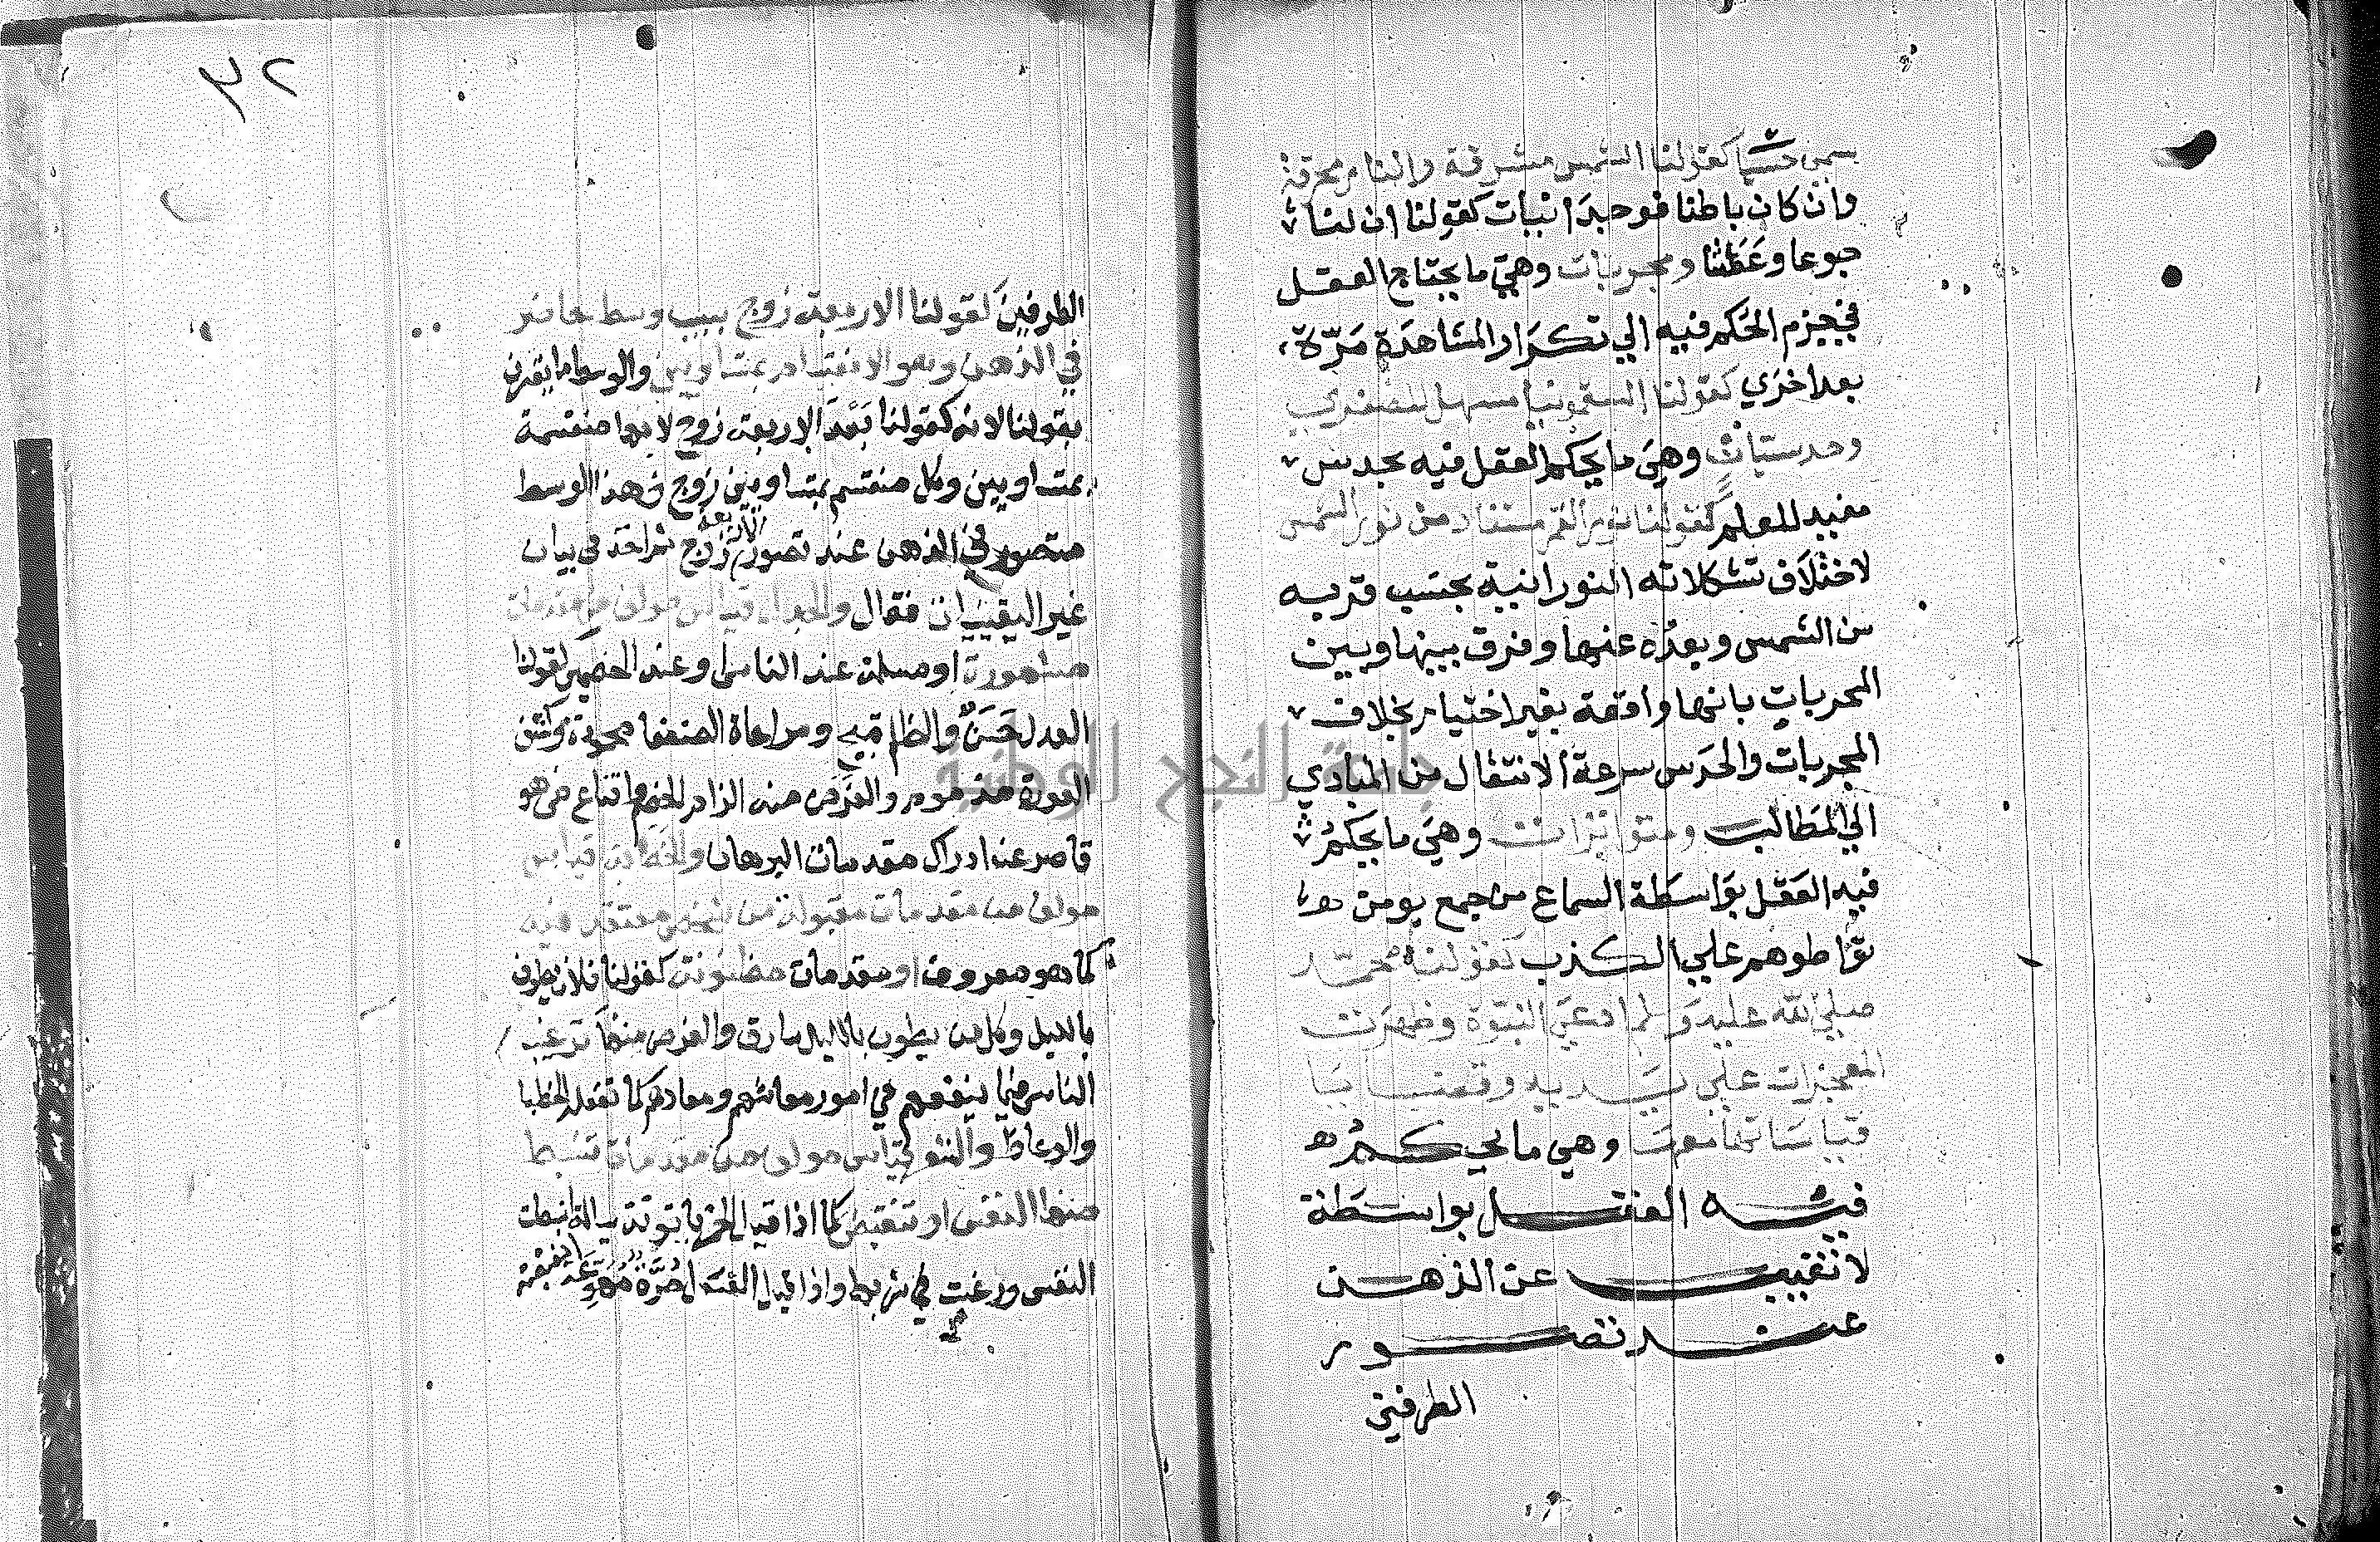 يسمى حسيا كقولنا الشمس مشرقة والنار محرقة
وان كان باطنا فوجدانيات كقولنا ان لنا
جوعا وعطشا ومجربات وهي ما يحتاج العقل
في جزم الحكم فيه الي تكرار المشاهدة مرة
بعد اخري كقولنا السقمونيا مسهل للصفري
وحدسيات وهي ما يحكم العقل فيه بحدس
مفيد للعلم كقولنا نور القمر مستفاد من نور الشمس
لاختلاف تشكلاته النورانية بحسب قربه
من الشمس وبعده عنها وفرق بينها وبين
المجربات بانها واقعة بغير اختيار بخلاف
المجربات والحدس سرعة الانتقال من المبادي
الي المطالب ومتواترات وهي ما يحكم
فيه العقل بواسطة السماع من جمع يومن
تواطوهم علي الكذب كقولنا محمد
صلي الله عليه وسلم ادعي النبوة وظهرت
المعجزات علي يديه وقضايا
قياساتها معها وهي ما يحكم
فيه العقل بواسطة
لا تغيب عن الذهن
عند تصور
الطرفين
٣٢
الطرفين كقولنا الاربعة زوج بسبب وسط حاضر
في الذهن وهو الانقسام بمتساويين والوسط ما يقترن
بقولنا لانه كقولنا بعد الاربعة زوج لانها منقسمة
بمتساويين وكل منقسم بمتساويين زوج فهذا الوسط
متصور في الذهن عند تصور الاربعة زوج ثم اخذ في بيان
غير اليقينيات فقال والجدل قياس مولف من مقدمات
مشهورة او مسلمة عند الناس او عند الخصمين كقولنا
العدل حسن والظلم قبيح ومراعاة الضعفا محمودة وكشف
العورة مذموم والغرض منه الزام الخصم واقناع من هو
قاصر عن ادراك مقدمات البرهان والخطابة قياس
مولف من مقدمات مقبولة من شخص معتقد فيه
كما هو معروف او مقدمات مظنونة كقولنا فلان يطوف
بالليل وكل من يطوف بالليل سارق والغرض منها ترغيب
الناس فيما ينفعهم في امور معاشهم ومعادهم كما تفعله الخطبا
والوعاظ والشعر قياس مولف من مقدمات تنبسط
منها النفس او تنقبض كما اذا قيل الخمر ياقوتة سيالة انبسطت
النفس ورغبت في شربها واذا قيل العسل مرة مهوعة انقبضت